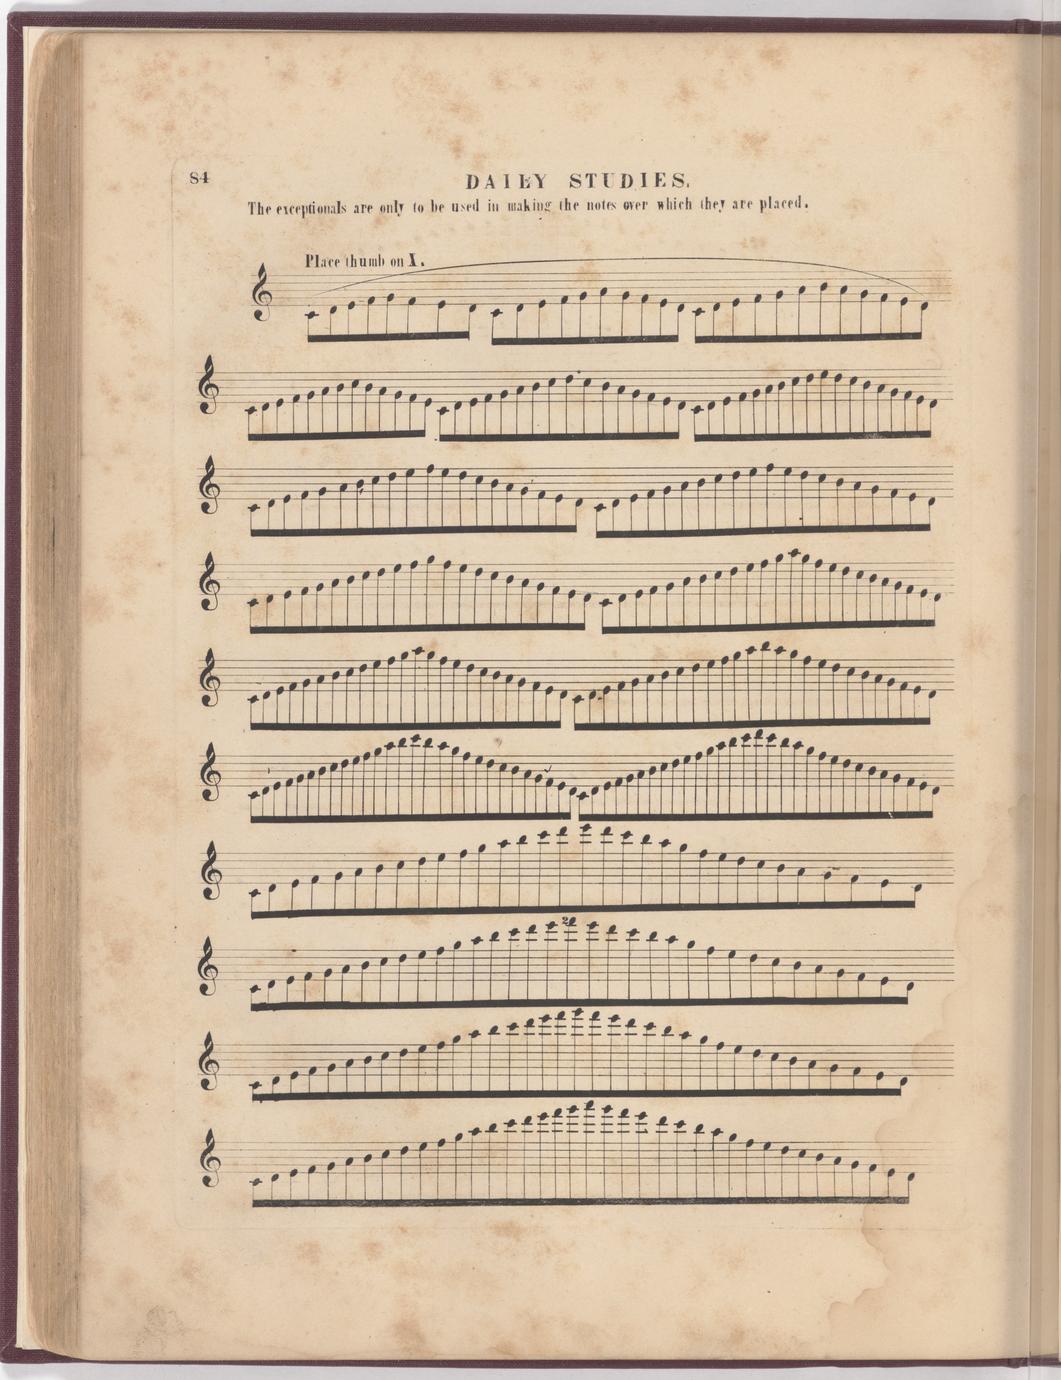 84
DAILY STUDIES.
The exceptionals are only to be used in making the notes over which they are placed.
Place thumb on X.